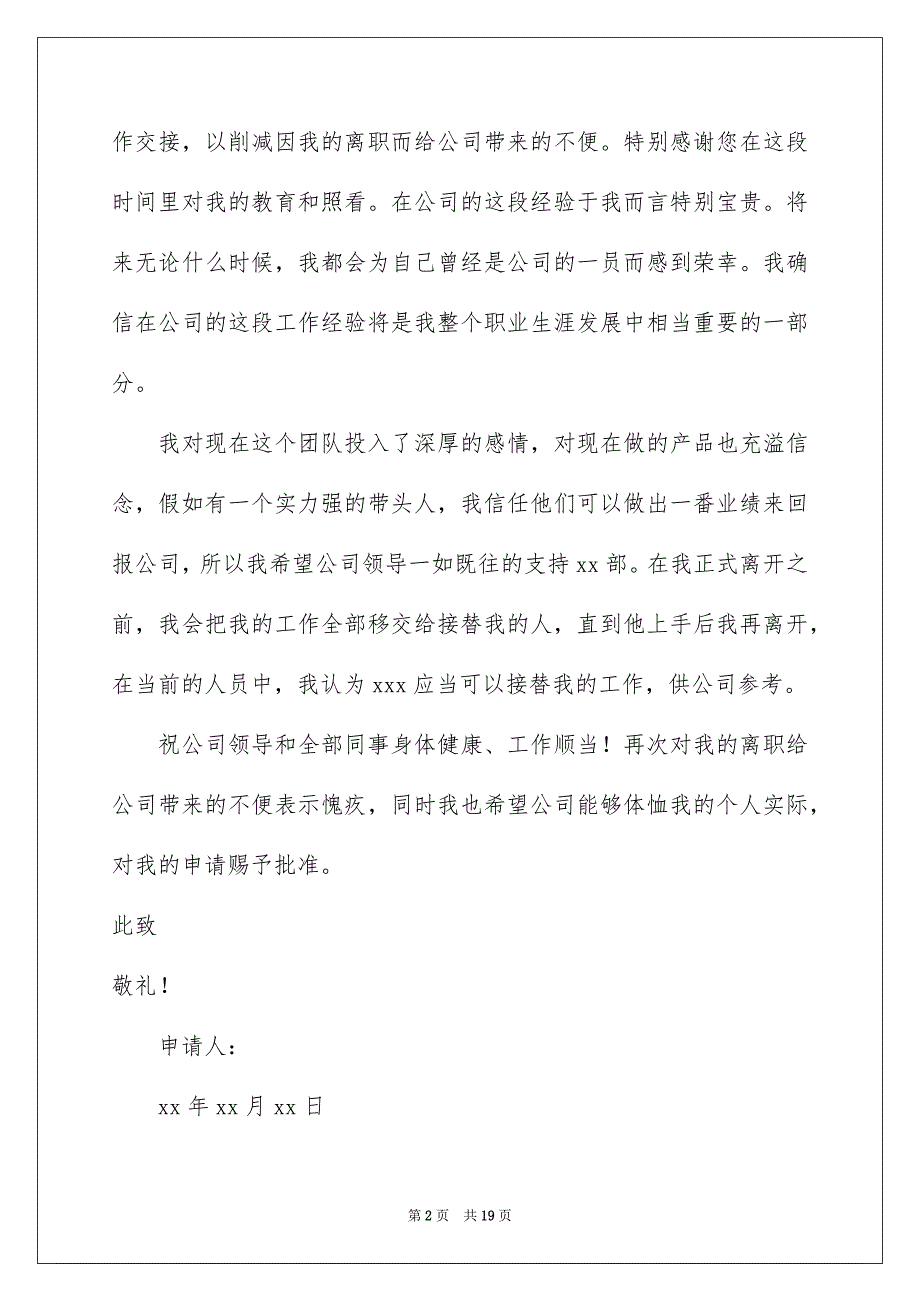 作交接，以削减因我的离职而给公司带来的不便。特别感谢您在这段
时间里对我的教育和照看。在公司的这段经验于我而言特别宝贵。将
来无论什么时候，我都会为自己曾经是公司的一员而感到荣幸。我确
信在公司的这段工作经验将是我整个职业生涯发展中相当重要的一部
分。
我对现在这个团队投入了深厚的感情，对现在做的产品也充溢信
念，假如有一个实力强的带头人，我信任他们可以做出一番业绩来回
报公司，所以我希望公司领导一如既往的支持 xx 部。在我正式离开之
前，我会把我的工作全部移交给接替我的人，直到他上手后我再离开，
在当前的人员中，我认为 xxx 应当可以接替我的工作，供公司参考。
祝公司领导和全部同事身体健康、工作顺当！再次对我的离职给
公司带来的不便表示愧疚，同时我也希望公司能够体恤我的个人实际，
对我的申请赐予批准。
此致
敬礼！
申请人：
xx 年 xx 月 xx 日
第 2 页 共 19 页